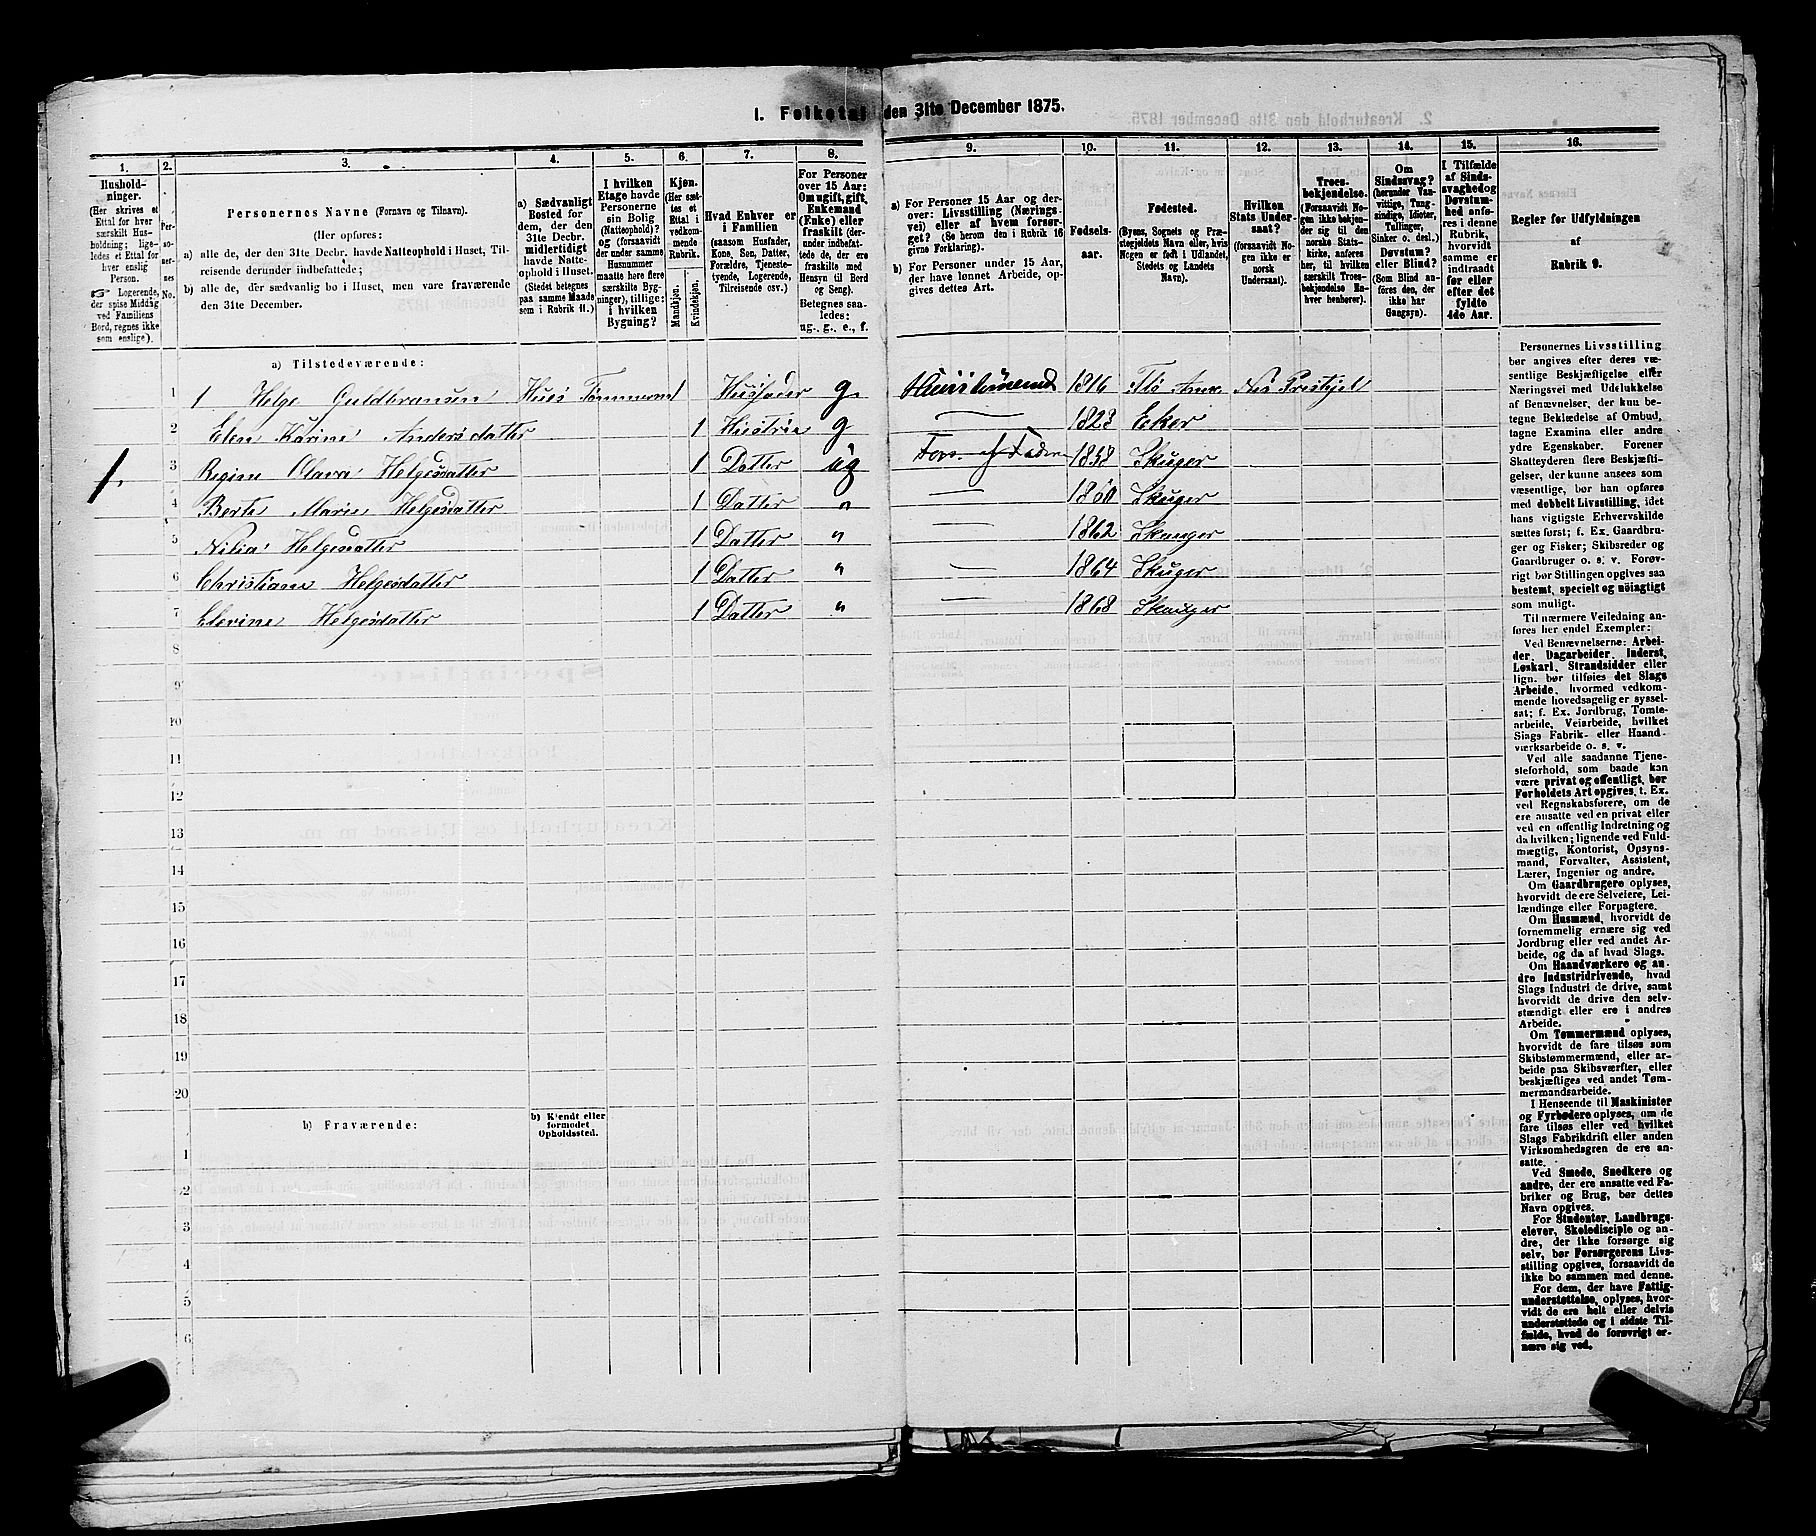 1. Folketal den 31te December 1875.
1. 2. 3. 4. 5. 6. 7. 8. 9. 10. 11. 12. 13. 14. 15. 16.
Hushold-
ninger.
(Her skrives et
Ettal for hver
særskilt Hus-
holdning; lige-
ledes et Ettal for
hver enslig
Person.
☞ Logerende,
der spise Middag
ved Familiens
Bord, regnes ikke
som enslige).
Per-
so-
ner-
nes
No.
Personernes Navne (Fornavn og Tilnavn).
(Her opføres:
a) alle de, der den 31te Decbr. havde Natteophold i Huset, Til-
reisende derunder indbefattede;
b) alle de, der sædvanlig bo i Huset, men vare fraværende
den 31te December.
a) Sædvanligt
Bosted for
dem, der den
31te Decbr.
midlertidigt
havde Natte-
ophold i Huset.
(Stedet betegnes
paa samme Maade
som i Rubrik 11.)
I hvilken
Etage havde
Personerne
sin Bolig
(Natteophold)?
og (forsaavidt
der under samme
Husnummer
maatte høre flere
særskilte Byg-
ninger), tillige:
i hvilken
Bygning?
Kjøn.
(Her sæt-
tes et
Ettal i
vedkom-
mende
Rubrik.
Mandkjøn.
Kvindekjøn.
Hvad Enhver er
i Familien
(saasom Husfader,
Kone, Søn, Datter,
Forældre, Tjeneste-
tyende, Logerende,
Tilreisende osv.)
For Personer
over 15 Aar:
Om ugift, gift,
Enkemand
(Enke) eller
fraskilt (der-
under indbefat-
tede de, der ere
fraskilte med
Hensyn til Bord
og Seng).
Betegnes saa-
ledes:
ug., g., e., f.
a) For Personer 15 Aar og der-
over: Livsstilling (Nærings-
vei) eller af hvem forsør-
get? (Se herom den i Rubrik 16
givne Forklaring).
b) For Personer under 15 Aar,
der have lønnet Arbeide, op-
gives dettes Art.
Fødsels-
aar.
Fødested.
(Byens, Sognets og Præ-
stegjeldets Navn eller, hvis
Nogen er født i Udlandet,
Stedets og Landets
Navn).
Hvilken
Stats Under-
saat?
(forsaavidt No-
gen ikke er
norsk
Undersaat).
Troes-
bekjendelse.
(Forsaavidt No-
gen ikke bekjen-
der sig til den
norske Stats-
kirke, anføres
her, til hvilken
særskilt Troes-
bekjendelse En-
hver henhører).
Om
Sindssvag?
(herunder Van-
vittige, Tung-
sindige, Idioter,
Tullinger,
Sinker o. desl.)
Døvstum?
eller Blind?
(Som Blind an-
føres den, der
ikke har
Gangsyn).
I Tilfælde
af Sinds-
svaghed og
Døvstum-
hed anfø-
res i denne
Rubrik,
hvorvidt
samme er
indtraadt
før eller
efter det
fyldte
4de Aar.
Regler for Udfyldningen
af
Rubrik 9.
a) Tilstedeværende:
1 1 Helge Guldbransen Huus 1 Husfader g. 1816
2 Elen Karine Andersdatter 1 Hustrue g — 1823 Eker
1. 3 Regine Olava Helgesdatter 1 Datter ug Fors. af Faderen 1858 Skuger
4 Berte Marie Helgesdatter 1 Datter " — 1860 Skuger
5 Helgesdatter 1 Datter " — 1862 Skuuger
6 Christiane Helgesdatter 1 Datter " — 1864 Skuger
7 Elevine Helgesdatter 1 Datter " — 1868 Skuuger
8
9
10
11
12
13
14
15
16
17
18
19
20
b) Fraværende:
b) Kjendt eller
formodet
Opholdssted.
1
2
3
4
5
6
Personernes Livsstilling
bør angives efter deres væ-
sentlige Beskjæftigelse eller
Næringsvei med Udelukkelse
af Benævnelser, der kun be-
tegne Beklædelse af Ombud,
tagne Examina eller andre
ydre Egenskaber. Forener
Skatteyderen flere Beskjæfti-
gelser, der kunne ansees som
væsentlige, bør han opføres
med dobbelt Livsstilling, idet
hans vigtigste Erhvervskilde
sættes først; f. Ex. Gaardbru-
ger og Fisker; Skibsreder og
Gaardbruger o. s. v. Forøv-
rigt bør Stillingen opgives saa
bestemt, specielt og nöiagtigt
som muligt.
Til nærmere Veiledning an-
føres her endel Exempler:
Ved Benævnelserne: Arbei-
der, Dagarbeider, Inderst,
Løskarl, Strandsidder eller
lign. bør tilføies det Slags
Arbeide, hvormed vedkom-
mende hovedsagelig er syssel-
sat; f. Ex. Jordbrug, Tomte-
arbeide, Veiarbeide, hvilket
Slags Fabrik- eller Haand-
værksarbeide o. s. v.
Ved alle saadanne Tjene-
steforhold, som baade kan
være privat og offentligt, bør
Forholdets Art opgives, t. Ex.
ved Regnskabsførere, om de
ere ansatte ved en privat eller
ved en offentlig Indretning og
da hvilken; lignende ved Fuld-
mægtig, Kontorist, Opsyns-
mand, Forvalter, Assistent,
Lærer, Ingeniør og andre.
Om Gaardbrugere oplyses,
hvorvidt de ere Selveiere, Lei-
lændinge eller Forpagtere.
Om Husmænd, hvorvidt de
fornemmelig ernære sig ved
Jordbrug eller ved andet Ar-
beide, og da af hvad Slags.
Om Haandværkere og an-
dre Industridrivende, hvad
Slags Industri de drive, samt
hvorvidt de drive den selv-
stændigt eller ere i andres
Arbeide.
Om Tømmermænd oplyses,
hvorvidt de fare tilsøs som
Skibstømmermænd, eller ar-
beide paa Skibsværfter, eller
beskjæftiges ved andet Tøm-
mermandsarbeide.
I Henseende til Maskinister
og Fyrbødere oplyses, om de
fare tilsøs eller ved hvilket
Slags Fabrikdrift eller anden
Virksomhedsgren de ere an-
satte.
Ved Smede, Snedkere og
andre, der ere ansatte ved Fa-
briker og Brug, bør dettes
Navn opgives.
For Studenter, Landbrugs-
elever, Skoledisciple og an-
dre, der ikke forsørge sig
selv, bør Forsørgerens Livs-
stilling opgives, forsaavidt de
ikke bo sammen med denne.
For dem, der have Fattig-
understøttelse, oplyses, hvor-
vidt de ere helt eller delvis
understøttede og i sidste Til-
fælde, hvad de forøvrigt er-
nære sig ved.